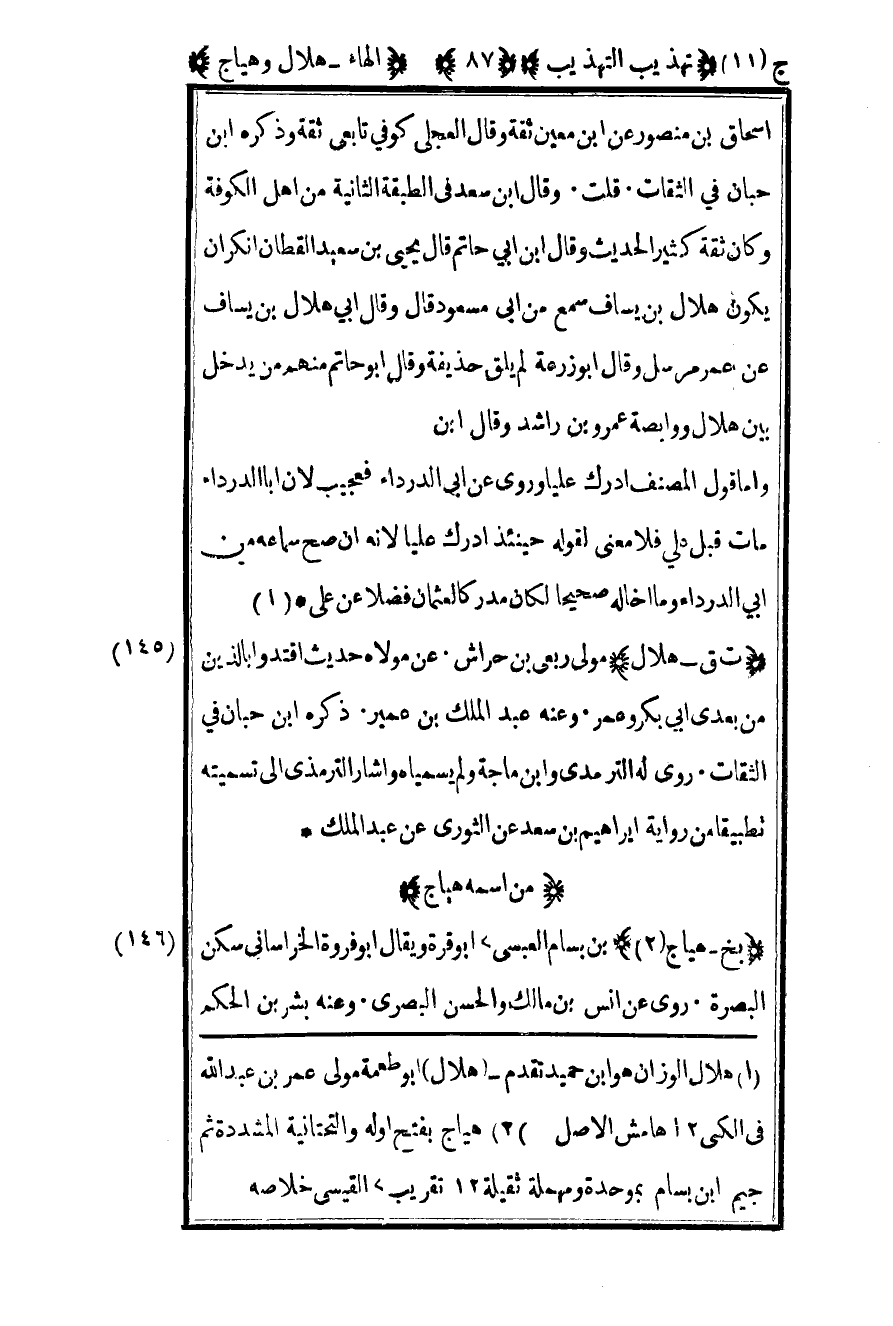 ج (١١) ﴿تهذيب التهذيب﴾ ﴿٨٧﴾ ﴿الهاء - هلال وهياج﴾
اسحاق بن منصور عن ابن معين ثقة وقال العجلى كوفي تابعى ثقة وذكره ابن
حبان في الثقات · قلت · وقال ابن سعد فى الطبقة الثانية من اهل الكوفة
وكان ثقة كثير الحديث وقال ابن ابي حاتم قال يحيى بن سعيد القطان انكر ان
يكون هلال بن يساف سمع من ابى مسعود قال وقال ابي هلال بن يساف
عن عمر مرسل وقال ابو زرعة لم يلق حذيفة وقال ابو حاتم منهم من يدخل
بين هلال ووابصة عمرو بن راشد وقال ابن
واما قول المصنف ادرك عليا وروى عن ابى الدرداء فعجيب لان ابا الدرداء
مات قبل علي فلا معنى لقوله حينئذ ادرك عليا لانه ان صح سماعه من
ابي الدرداء وما اخاله صحيحا لكان مدركا لعثمان فضلا عن على * (١)
﴿ت ق - هلال﴾ مولى ربعى بن حراش · عن مولاه حديث اقتدوا بالذين (١٤٥)
من بعدى ابي بكر وعمر · وعنه عبد الملك بن عمير · ذكره ابن حبان في
الثقات · روى له الترمذى وابن ماجة ولم يسمياه واشار الترمذى الى تسميته
تطبيقا من رواية ابراهيم بن سعد عن الثورى عن عبد الملك *
﴿من اسمه هياج﴾
﴿بخ - هياج (٢)﴾ بن بسام العبسى > ابو قرة ويقال ابو فروة الخراسانى سكن (١٤٦)
البصرة · روى عن انس بن مالك والحسن البصرى · وعنه بشر بن الحكم
(١) هلال الوزان هو ابن حميد تقدم - (هلال) ابو طعمة مولى عمر بن عبد الله
فى الكنى ١٢ هامش الاصل (٢) هياج بفتح اوله والتحتانية المشددة ثم
جيم ابن بسام بموحدة ومهملة ثقيلة ١٢ تقريب > القيسى خلاصه